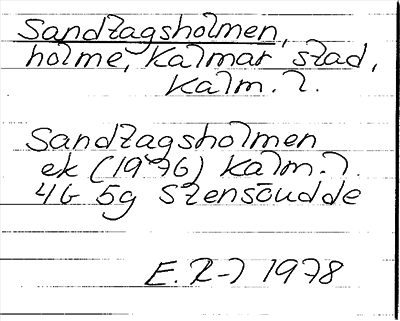 Sandtagsholmen,
holme, Kalmar stad,
Kalm. l.
Sandtagsholmen
ek (1976) Kalm. l.
4G 5g Stensöudde
E. R-l 1978